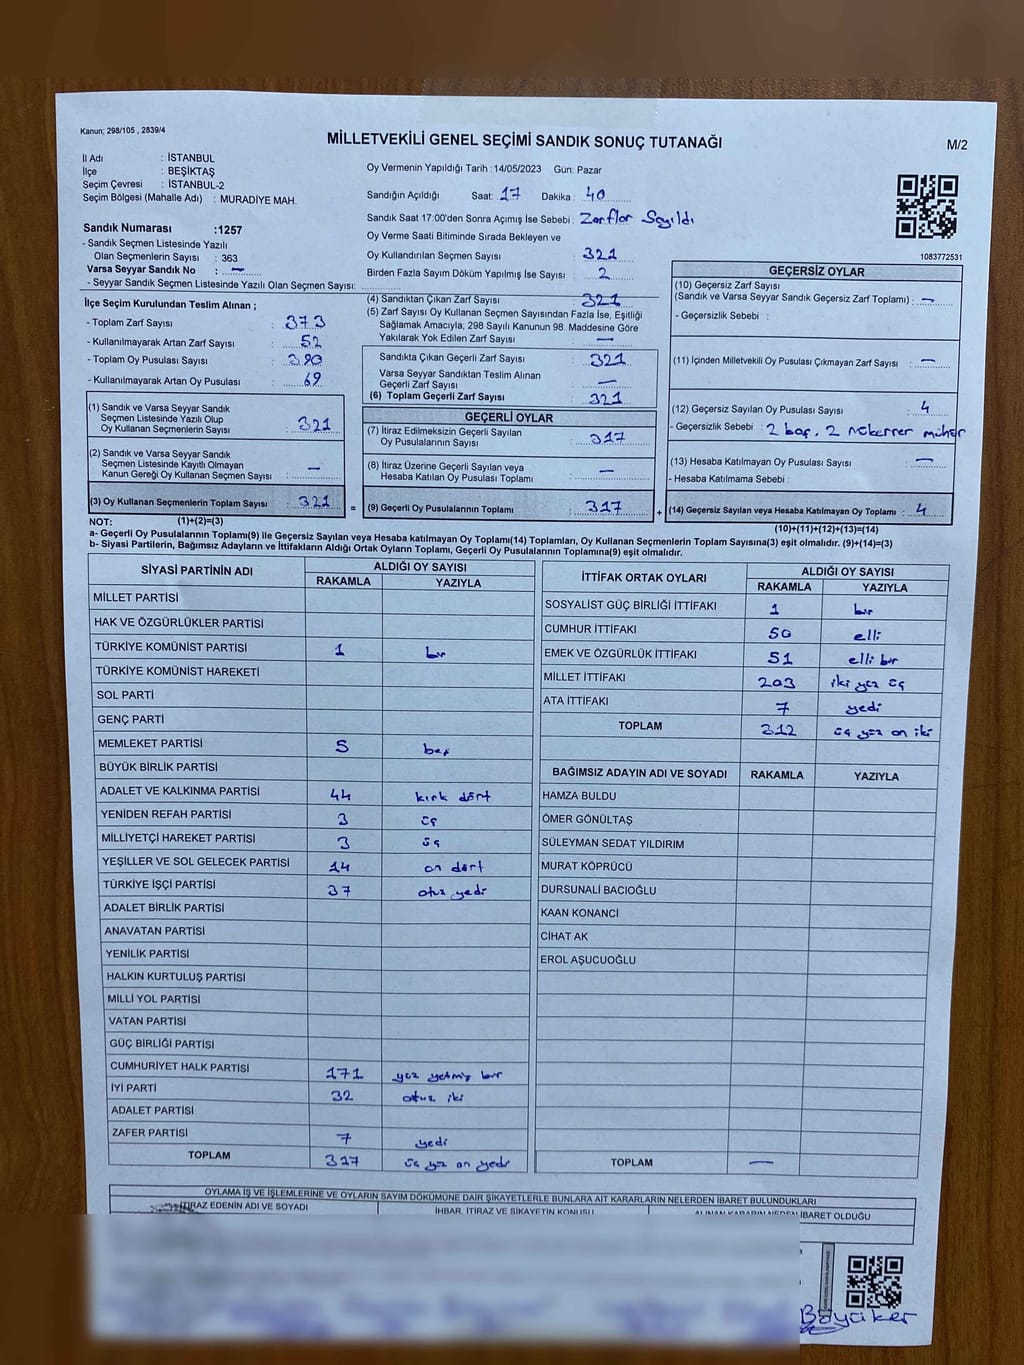 Kanun; 298/105 , 2839/4
MİLLETVEKİLİ GENEL SEÇİMİ SANDIK SONUÇ TUTANAĞI
M/2
İl Adı : İSTANBUL
İlçe : BEŞİKTAŞ
Seçim Çevresi : İSTANBUL-2
Seçim Bölgesi (Mahalle Adı) : MURADİYE MAH.
Oy Vermenin Yapıldığı Tarih : 14/05/2023 Gün: Pazar
Sandığın Açıldığı Saat: 17 Dakika : 40
Sandık Saat 17:00'den Sonra Açımış İse Sebebi : Zarflar Sayıldı
Oy Verme Saati Bitiminde Sırada Bekleyen ve
Oy Kullandırılan Seçmen Sayısı : 321
Birden Fazla Sayım Döküm Yapılmış İse Sayısı : 2
1083772531
Sandık Numarası :1257
- Sandık Seçmen Listesinde Yazılı
Olan Seçmenlerin Sayısı : 363
Varsa Seyyar Sandık No : —
- Seyyar Sandık Seçmen Listesinde Yazılı Olan Seçmen Sayısı:
İlçe Seçim Kurulundan Teslim Alınan ;
- Toplam Zarf Sayısı : 373
- Kullanılmayarak Artan Zarf Sayısı : 52
- Toplam Oy Pusulası Sayısı : 390
- Kullanılmayarak Artan Oy Pusulası : 69
(1) Sandık ve Varsa Seyyar Sandık
Seçmen Listesinde Yazılı Olup
Oy Kullanan Seçmenlerin Sayısı : 321
(2) Sandık ve Varsa Seyyar Sandık
Seçmen Listesinde Kayıtlı Olmayan
Kanun Gereği Oy Kullanan Seçmen Sayısı : —
(3) Oy Kullanan Seçmenlerin Toplam Sayısı : 321
(4) Sandıktan Çıkan Zarf Sayısı : 321
(5) Zarf Sayısı Oy Kullanan Seçmen Sayısından Fazla İse, Eşitliği
Sağlamak Amacıyla, 298 Sayılı Kanunun 98. Maddesine Göre
Yakılarak Yok Edilen Zarf Sayısı : —
Sandıkta Çıkan Geçerli Zarf Sayısı : 321
Varsa Seyyar Sandıktan Teslim Alınan
Geçerli Zarf Sayısı : —
(6) Toplam Geçerli Zarf Sayısı : 321
GEÇERLİ OYLAR
(7) İtiraz Edilmeksizin Geçerli Sayılan
Oy Pusulalarının Sayısı : 317
(8) İtiraz Üzerine Geçerli Sayılan veya
Hesaba Katılan Oy Pusulası Toplamı : —
= (9) Geçerli Oy Pusulalarının Toplamı : 317
GEÇERSİZ OYLAR
(10) Geçersiz Zarf Sayısı
(Sandık ve Varsa Seyyar Sandık Geçersiz Zarf Toplamı) : —
- Geçersizlik Sebebi :
(11) İçinden Milletvekili Oy Pusulası Çıkmayan Zarf Sayısı : —
(12) Geçersiz Sayılan Oy Pusulası Sayısı : 4
- Geçersizlik Sebebi : 2 boş, 2 mükerrer mühür
(13) Hesaba Katılmayan Oy Pusulası Sayısı : —
- Hesaba Katılmama Sebebi :
+ (14) Geçersiz Sayılan veya Hesaba Katılmayan Oy Toplamı : 4
NOT: (1)+(2)=(3)
(10)+(11)+(12)+(13)=(14)
a- Geçerli Oy Pusulalarının Toplamı(9) ile Geçersiz Sayılan veya Hesaba katılmayan Oy Toplamı(14) Toplamları, Oy Kullanan Seçmenlerin Toplam Sayısına(3) eşit olmalıdır. (9)+(14)=(3)
b- Siyasi Partilerin, Bağımsız Adayların ve İttifakların Aldığı Ortak Oyların Toplamı, Geçerli Oy Pusulalarının Toplamına(9) eşit olmalıdır.
SİYASİ PARTİNİN ADI ALDIĞI OY SAYISI
RAKAMLA YAZIYLA
MİLLET PARTİSİ
HAK VE ÖZGÜRLÜKLER PARTİSİ
TÜRKİYE KOMÜNİST PARTİSİ 1 bir
TÜRKİYE KOMÜNİST HAREKETİ
SOL PARTİ
GENÇ PARTİ
MEMLEKET PARTİSİ 5 beş
BÜYÜK BİRLİK PARTİSİ
ADALET VE KALKINMA PARTİSİ 44 kırk dört
YENİDEN REFAH PARTİSİ 3 üç
MİLLİYETÇİ HAREKET PARTİSİ 3 üç
YEŞİLLER VE SOL GELECEK PARTİSİ 14 on dört
TÜRKİYE İŞÇİ PARTİSİ 37 otuz yedi
ADALET BİRLİK PARTİSİ
ANAVATAN PARTİSİ
YENİLİK PARTİSİ
HALKIN KURTULUŞ PARTİSİ
MİLLİ YOL PARTİSİ
VATAN PARTİSİ
GÜÇ BİRLİĞİ PARTİSİ
CUMHURİYET HALK PARTİSİ 171 yüz yetmiş bir
İYİ PARTİ 32 otuz iki
ADALET PARTİSİ
ZAFER PARTİSİ 7 yedi
TOPLAM 317 üç yüz on yedi
İTTİFAK ORTAK OYLARI ALDIĞI OY SAYISI
RAKAMLA YAZIYLA
SOSYALİST GÜÇ BİRLİĞİ İTTİFAKI 1 bir
CUMHUR İTTİFAKI 50 elli
EMEK VE ÖZGÜRLÜK İTTİFAKI 51 elli bir
MİLLET İTTİFAKI 203 iki yüz üç
ATA İTTİFAKI 7 yedi
TOPLAM 312 üç yüz on iki
BAĞIMSIZ ADAYIN ADI VE SOYADI RAKAMLA YAZIYLA
HAMZA BULDU
ÖMER GÖNÜLTAŞ
SÜLEYMAN SEDAT YILDIRIM
MURAT KÖPRÜCÜ
DURSUNALİ BACIOĞLU
KAAN KONANCİ
CİHAT AK
EROL AŞUCUOĞLU
TOPLAM —
OYLAMA İŞ VE İŞLEMLERİNE VE OYLARIN SAYIM DÖKÜMÜNE DAİR ŞİKAYETLERLE BUNLARA AİT KARARLARIN NELERDEN İBARET BULUNDUKLARI
İTİRAZ EDENİN ADI VE SOYADI İHBAR, İTİRAZ VE ŞİKAYETİN KONUSU ALINAN KARARIN NEDEN İBARET OLDUĞU